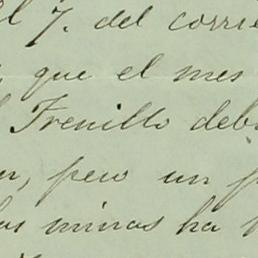 el 7. del corrie
que el mes
Frenillo deb
pero un p
las minas ha